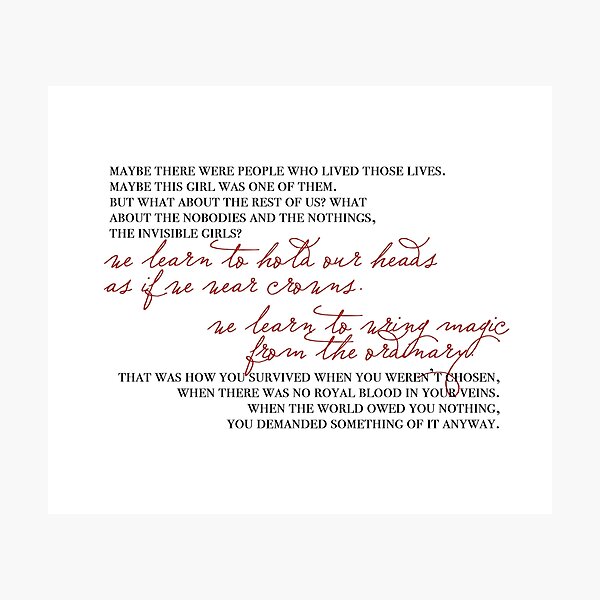 MAYBE THERE WERE PEOPLE WHO LIVED THOSE LIVES.
MAYBE THIS GIRL WAS ONE OF THEM.
BUT WHAT ABOUT THE REST OF US? WHAT
ABOUT THE NOBODIES AND THE NOTHINGS,
THE INVISIBLE GIRLS?
we learn to hold our heads
as if we wear crowns.
we learn to wring magic
from the ordinary.
THAT WAS HOW YOU SURVIVED WHEN YOU WEREN'T CHOSEN,
WHEN THERE WAS NO ROYAL BLOOD IN YOUR VEINS.
WHEN THE WORLD OWED YOU NOTHING,
YOU DEMANDED SOMETHING OF IT ANYWAY.